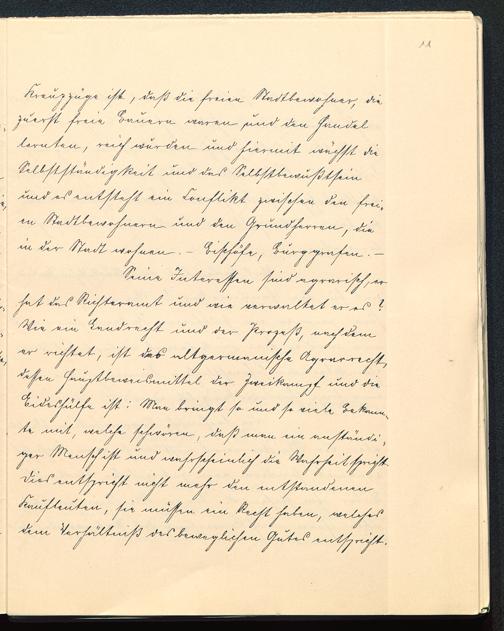 11
Kreuzzüge ist, daß die freien Stadtbewohner, die
zuerst freie Bauern waren und den Handel
lernten, reich wurden und hiermit wächst die
Selbstständigkeit und das Selbstbewußtsein
und es entsteht ein Conflikt zwischen den frei-
en Stadtbewohnern und den Grundherren, die
in der Stadt wohnen. – Bischöfe, Burggrafen. –
Seine Interessen sind agrarisch, er
hat das Richteramt und wie verwaltet er es?
Wie ein Landrecht und der Prozeß, nach dem
er richtet, ist das altgermanische Agrarrecht,
dessen Hauptbeweismittel der Zweikampf und die
Eideshülfe ist: Man bringt so und so viele Bekann-
te mit, welche schwören, daß man ein anständi-
ger Mensch ist und wahrscheinlich die Wahrheit spricht.
Dies entspricht nicht mehr den entstandenen
Kaufleuten, sie müssen ein Recht haben, welches
dem Verhältniß des beweglichen Gutes entspricht.